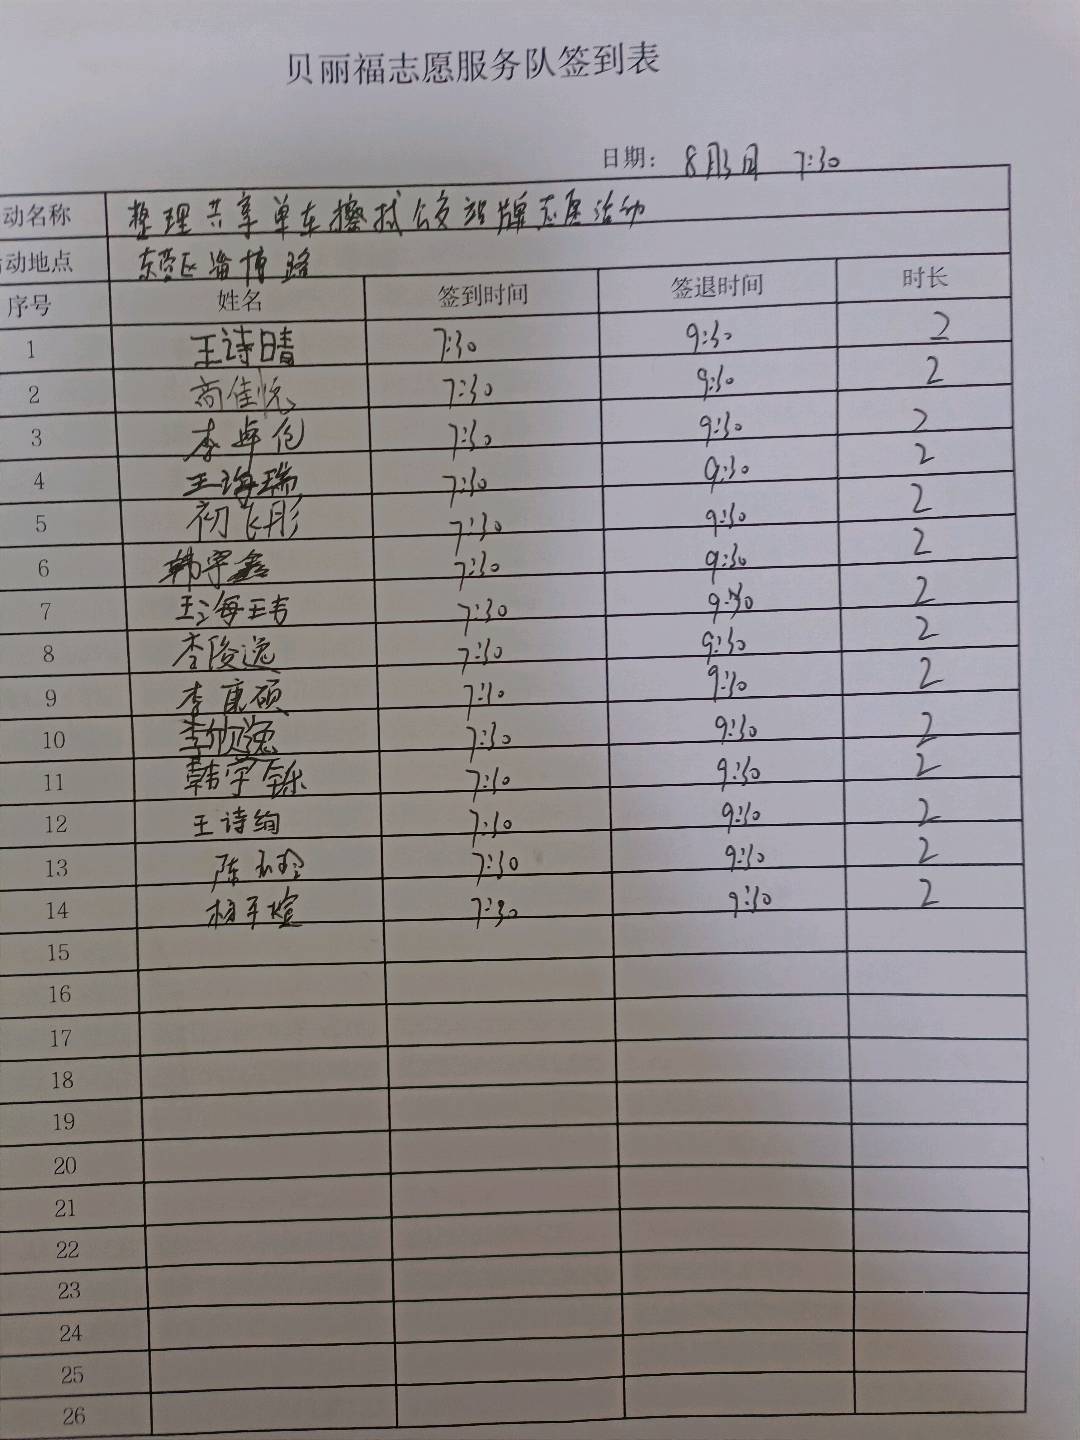 贝丽福志愿服务队签到表
日期： 8月3日 7:30
动名称 整理共享单车擦拭公交站牌志愿活动
动地点 东营区淄博路
序号 姓名 签到时间 签退时间 时长
1 王诗晴 7:30 9:30 2
2 商佳悦 7:30 9:30 2
3 李卓伦 7:30 9:30 2
4 王海瑞 7:30 9:30 2
5 初飞彤 7:30 9:30 2
6 韩宇鑫 7:30 9:30 2
7 王海玮 7:30 9:30 2
8 李俊逸 7:30 9:30 2
9 李康硕 7:30 9:30 2
10 李欣逸 7:30 9:30 2
11 韩宇铄 7:30 9:30 2
12 王诗绚 7:30 9:30 2
13 陈 7:30 9:30 2
14 7:30 9:30 2
15
16
17
18
19
20
21
22
23
24
25
26